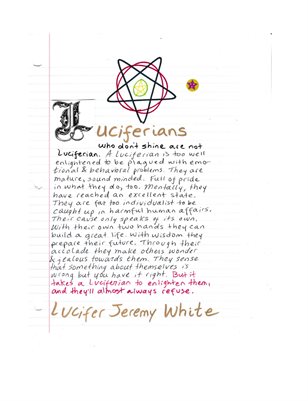 Luciferians
who don't shine are not
Luciferian. A Luciferian is too well
enlightened to be plagued with emo-
tional & behavioral problems. They are
mature, sound minded. Full of pride
in what they do, too. Mentally, they
have reached an excellent state.
They are far too individualist to be
caught up in harmful human affairs.
Their cause only speaks of its own.
With their own two hands they can
build a great life. With wisdom they
prepare their future. Through their
accolade they make others wonder
& jealous towards them. They sense
that something about themselves is
wrong but you have it right. But it
takes a Luciferian to enlighten them,
and they'll almost always refuse.
Lucifer Jeremy White